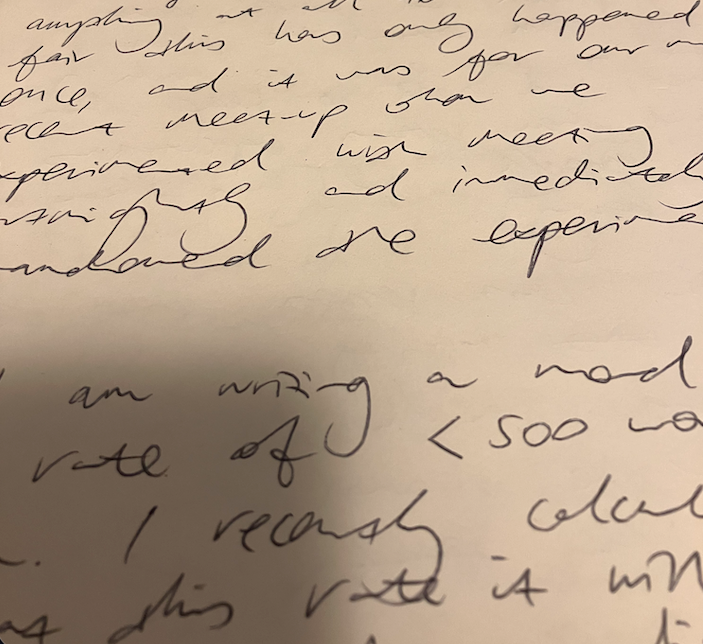 anything at all
fair this has only happened
once, and it was for our
recent meet-up when we
experimented with meeting
and immediately
abandoned the experime
I am writing a
rate of < 500 wo
I recently calcul
at this rate it will